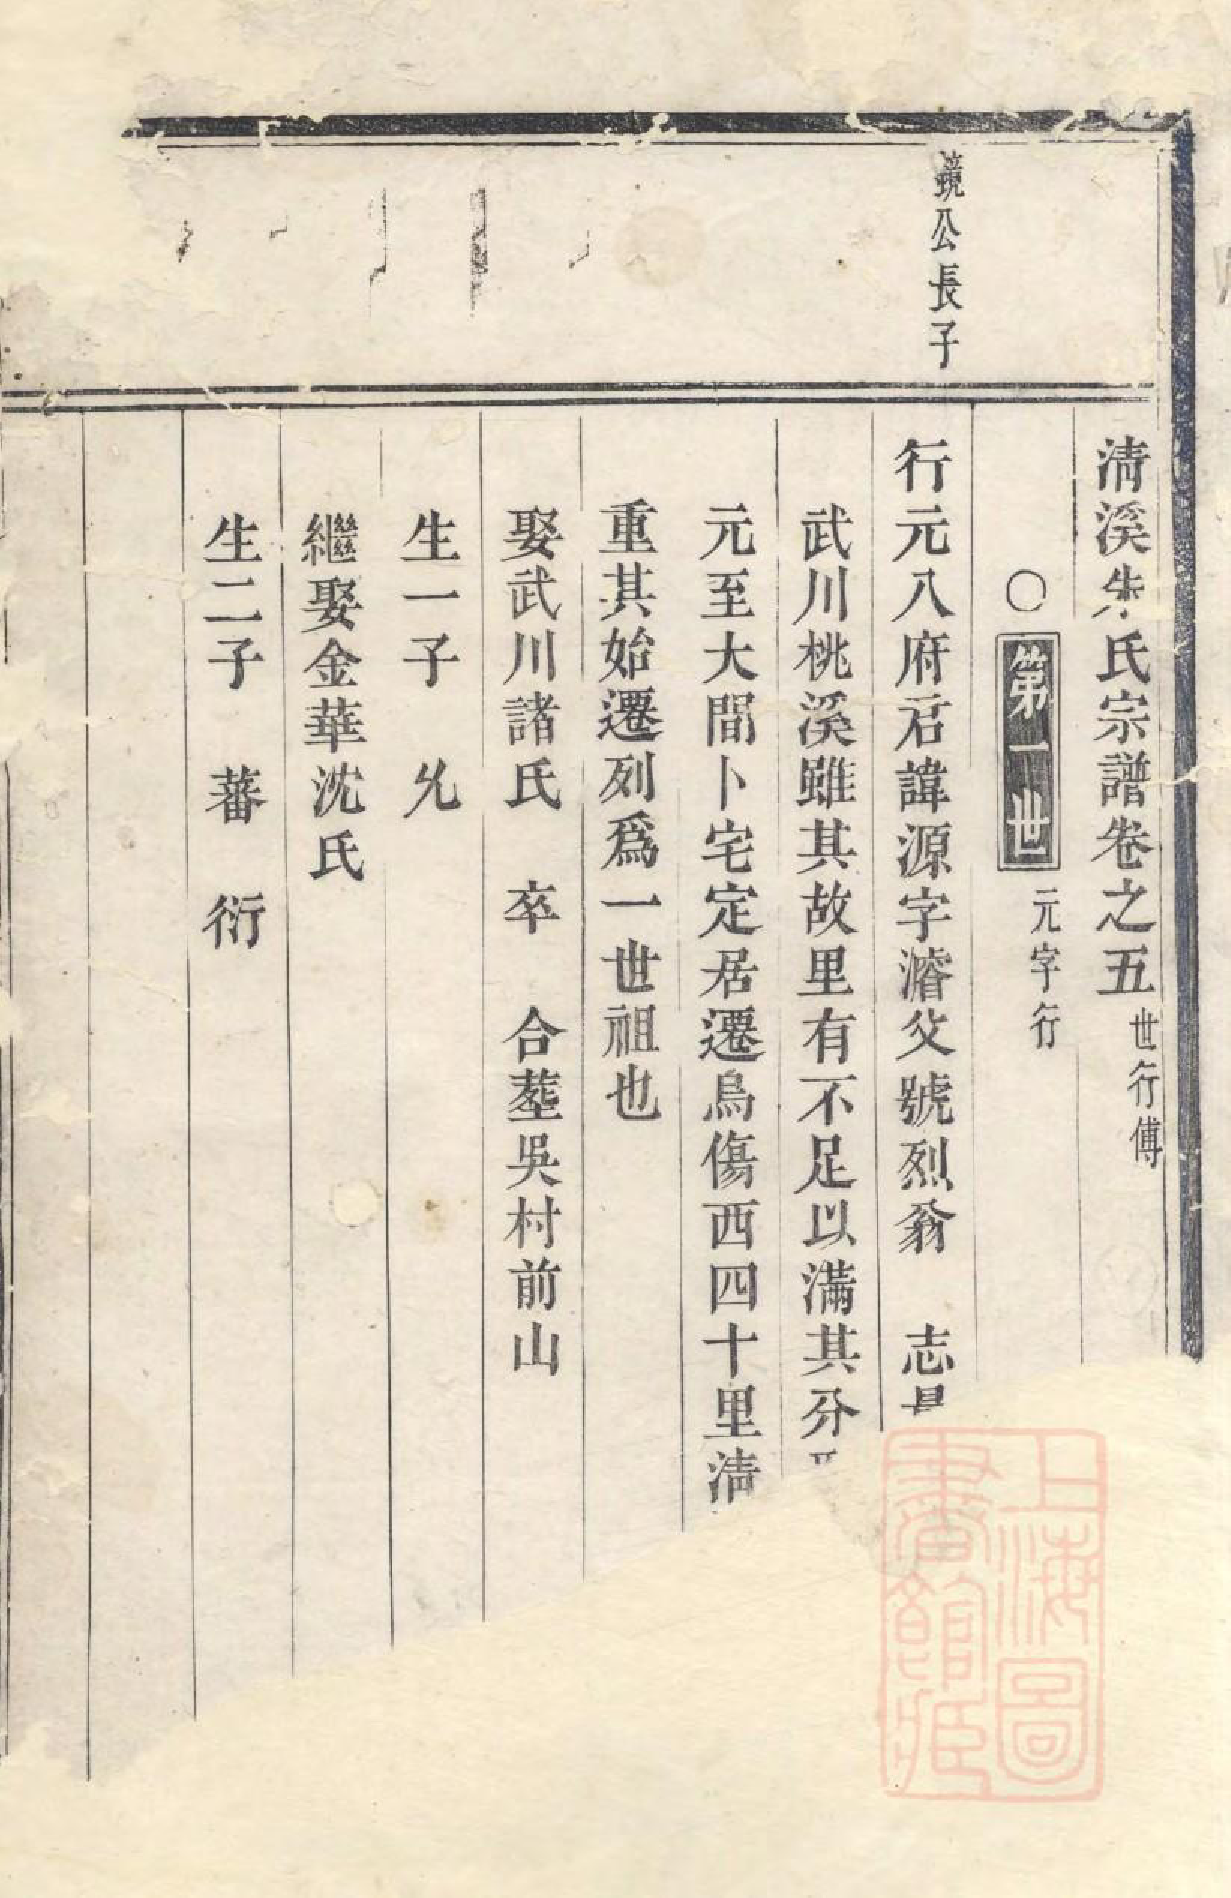 清溪朱氏宗譜卷之五 世行傳
○第一世 元字行
鏡公長子
行元八府君諱源字濬父號烈翁 志
武川桃溪雖其故里有不足以滿其分
元至大間卜宅定居遷烏傷西四十里清
重其始遷列爲一世祖也
娶武川諸氏 卒 合塟吳村前山
生一子 允
繼娶金華沈氏
生二子 蕃 衍
上海圖
書館藏